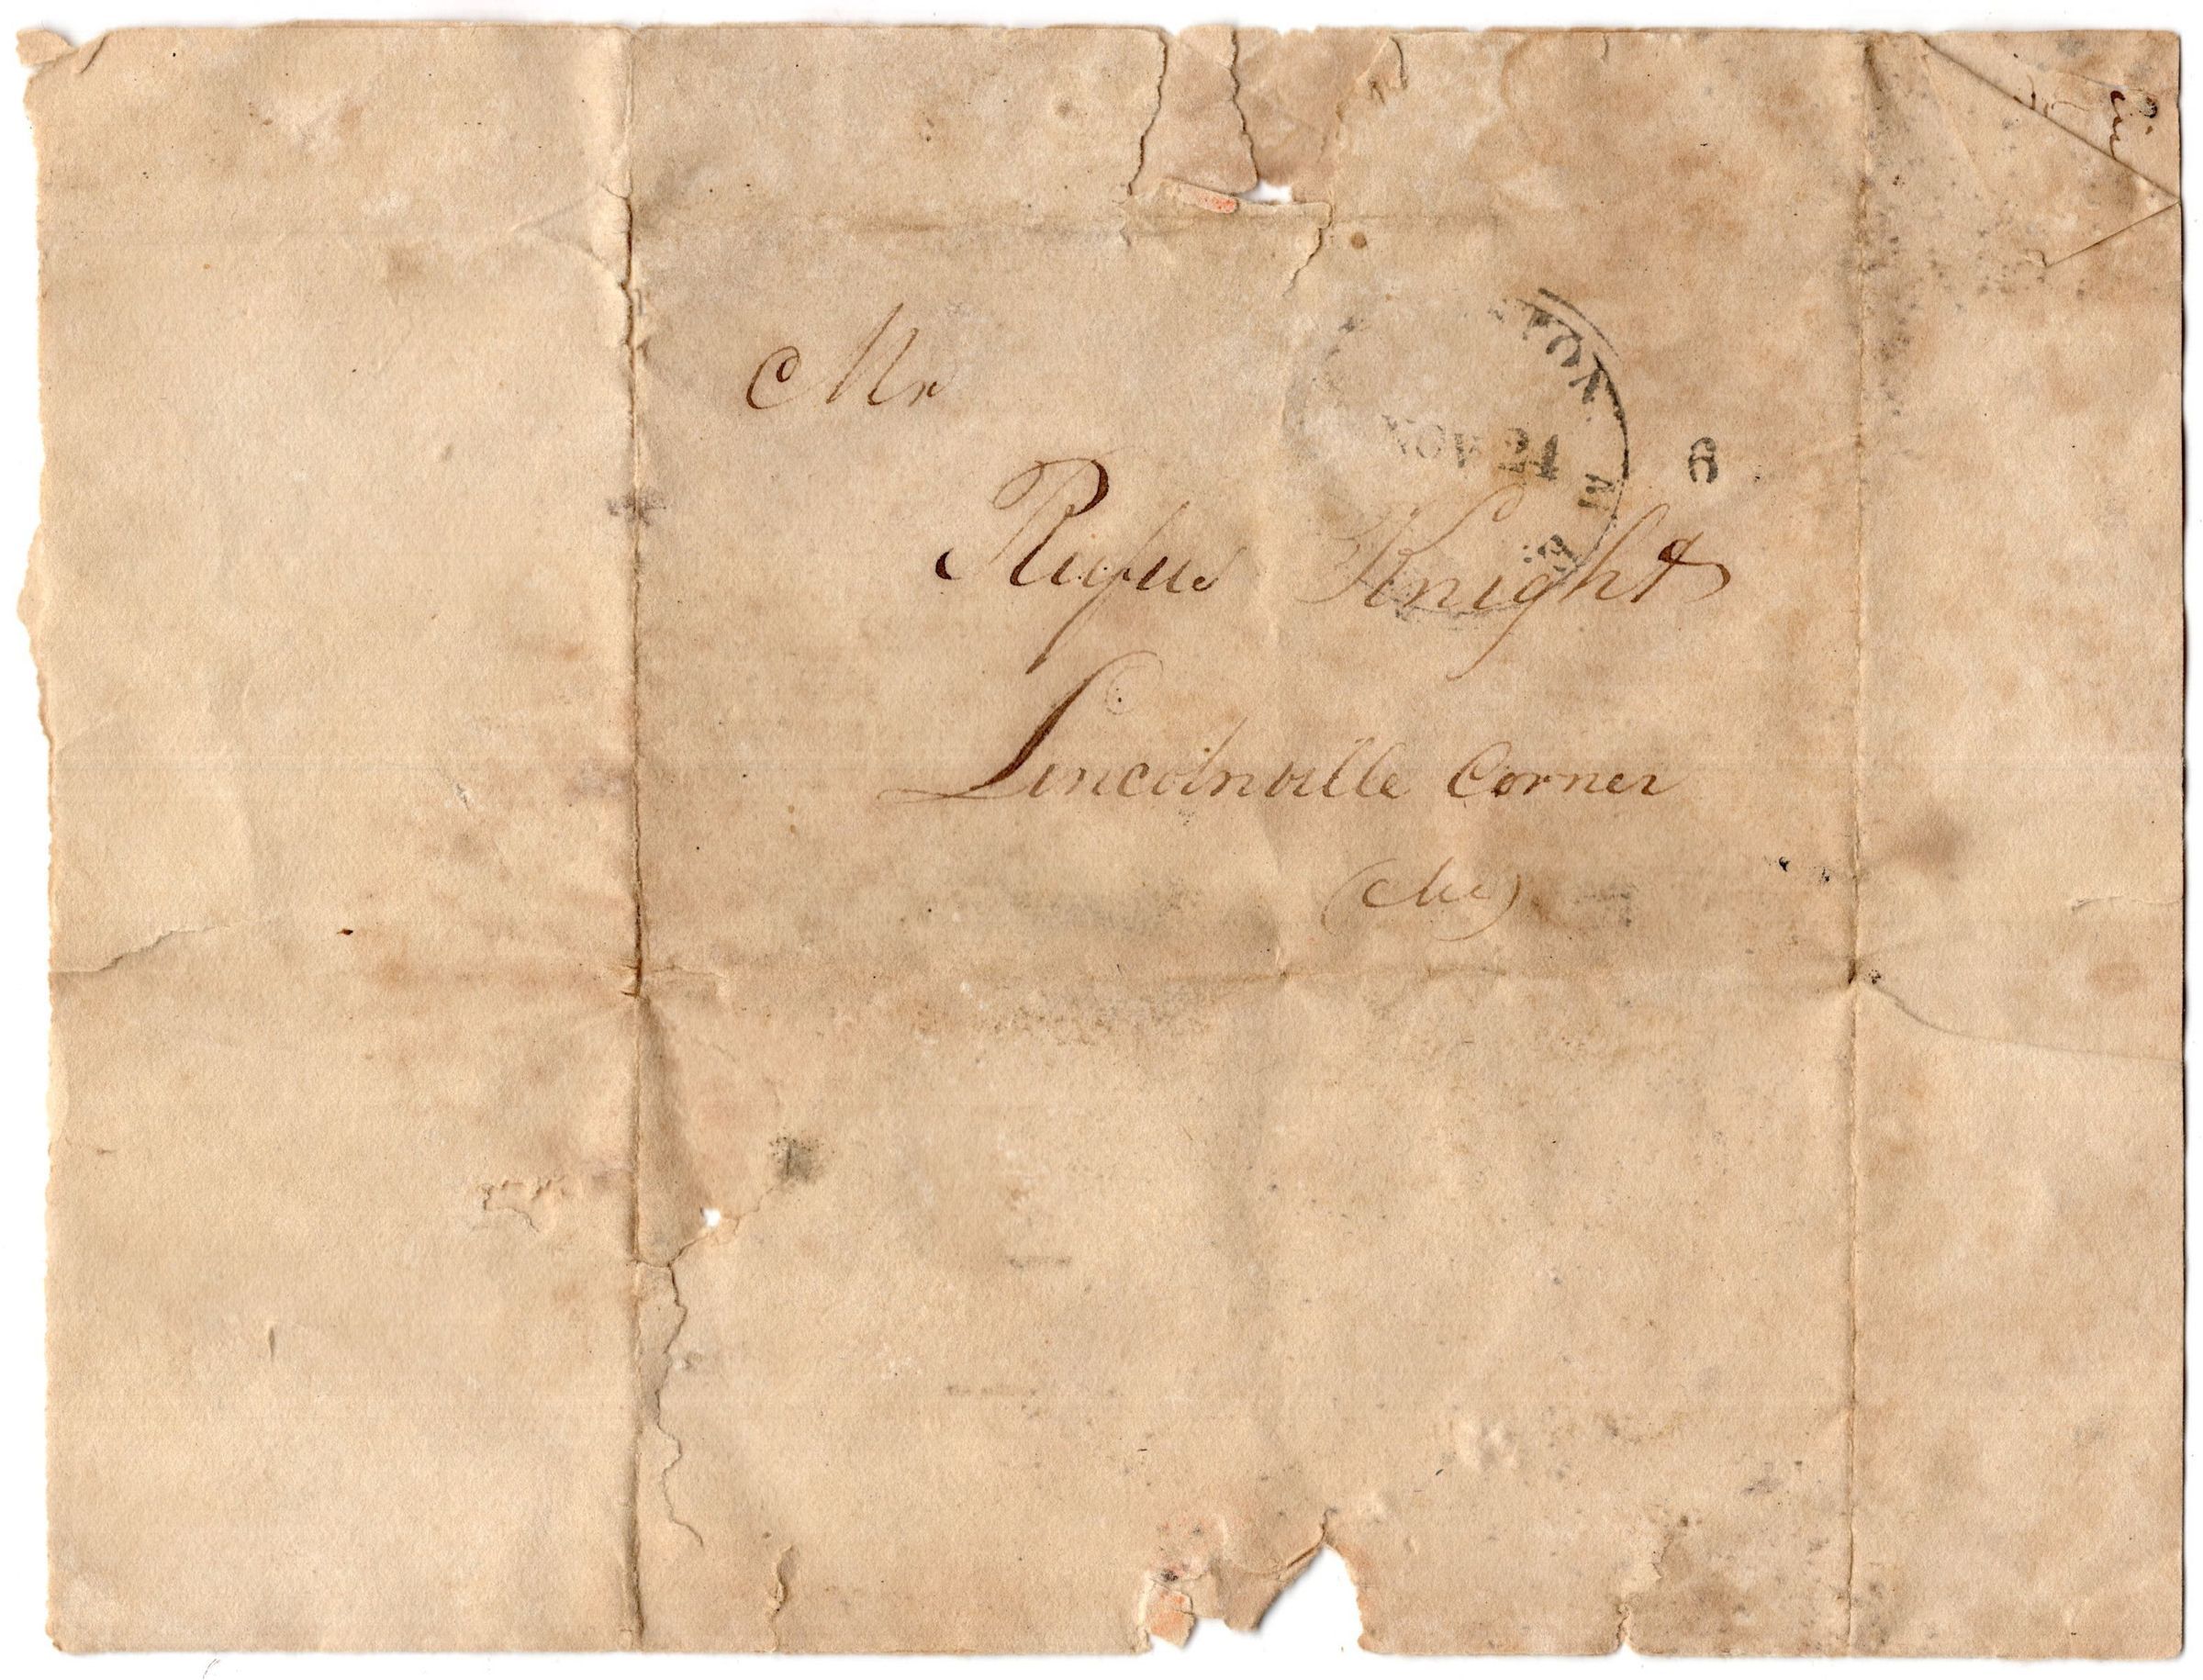 NOV 21
6
Mr
Rufus Knight
Lincolnville Corner
(Me)